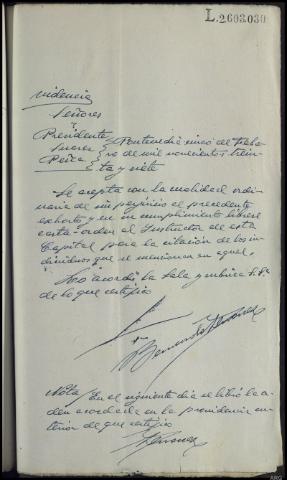 L.2603030
Providencia
Señores
Presidente
Suarez
Peira
Pontevedra cinco de Febre-
ro de mil novecientos trein-
ta y siete
Se acepta con la cualidad ordi-
naria de sin perjuicio el precedente
exhorto y en su cumplimiento librese
carta-orden al Instructor de esta
Capital para la citación de los in-
dividuos que se mencionan en aquel.
Lo acordó la Sala y rubrica S. Sª
de lo que certifico
Nota/ En el siguiente dia se libró la or-
den acordada en la providencia an-
terior de que certifico